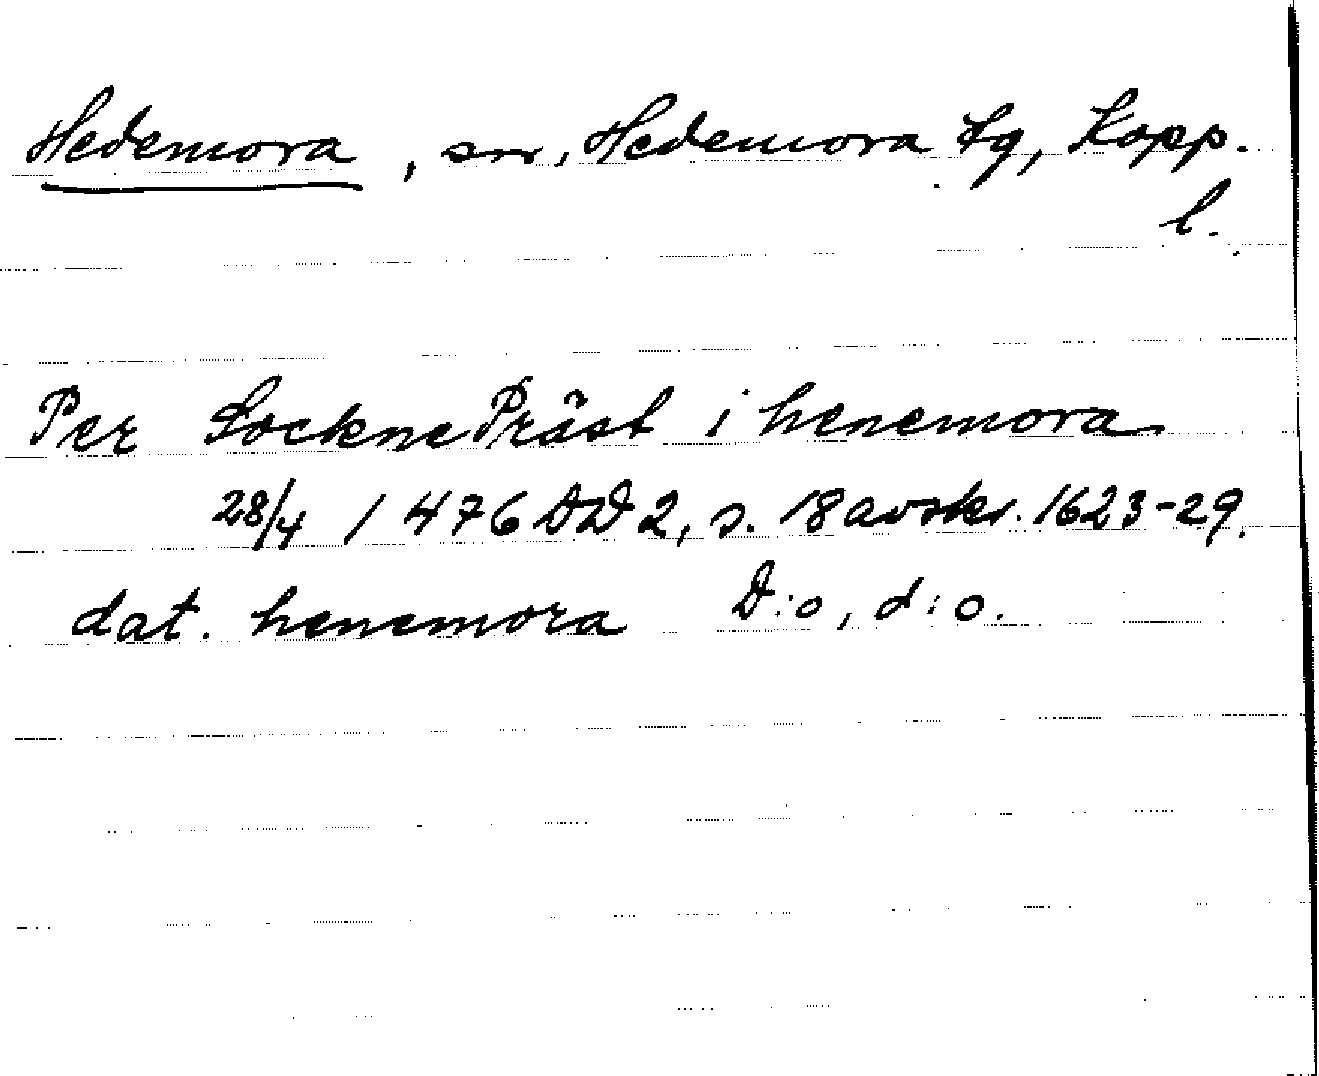 Hedemora, sn, Hedemora tg, Kopp.
l.
Per Sockne Präst i henemora
28/4 1476 DD 2, s. 18 avskr. 1623-29.
dat. henemora D:o, d:o.